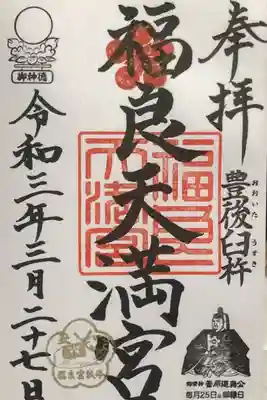 奉拝
豊後臼杵
おおいた うすき
福良天満宮
令和三年三月二十七日
御神徳
御祭神 菅原道真公
毎月25日は御縁日